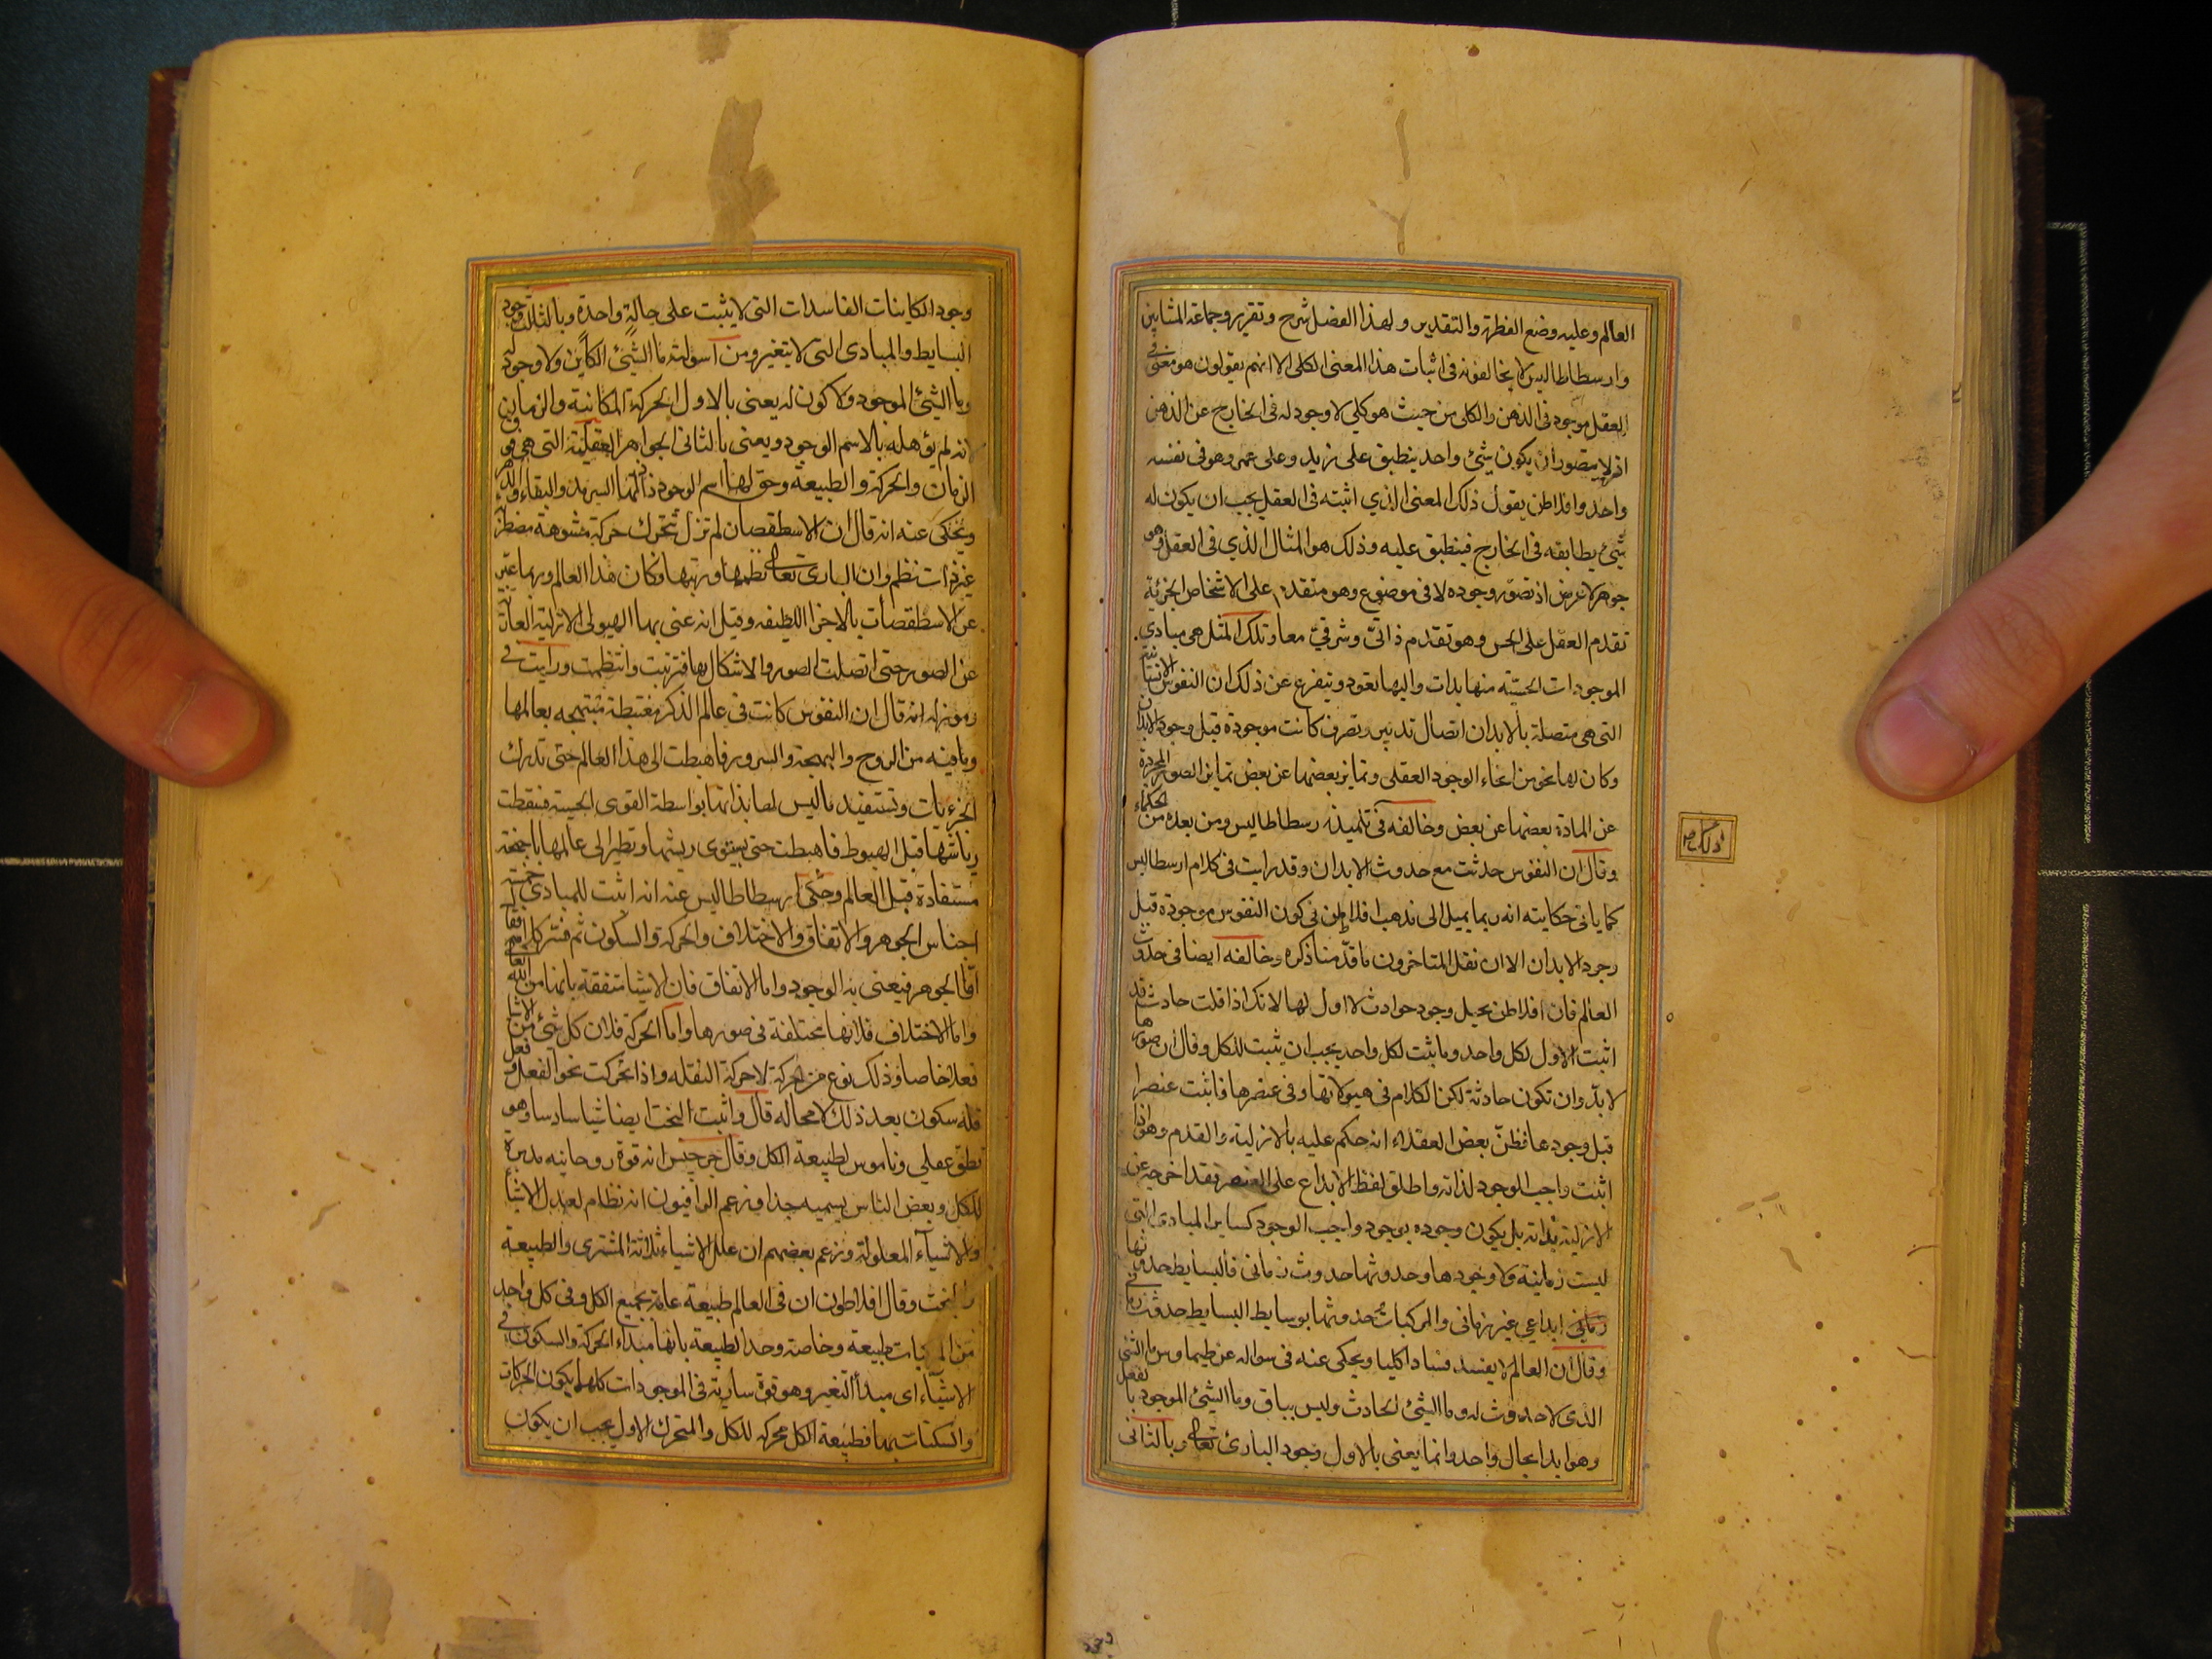 العالم وعليه وضع الفطرة والتقدير ولهذا الفصل شرح وتقرير وجماعة المشايين
وارسطاطاليس لا يخالفونه فى اثبات هذا المعنى الكلى الا انهم يقولون هو معنى فى
العقل موجود فى الذهن والكلى من حيث هو كلي لا وجود له فى الخارج عن الذهن
اذ لا يتصور ان يكون شئ واحد ينطبق على زيد وعلى عمرو وهو فى نفسه
واحد وافلاطن يقول ذلك المعنى الذي اثبته فى العقل يجب ان يكون له
شئ يطابقه فى الخارج فينطبق عليه وذلك هو المثال الذي فى العقل وهو
جوهر لا عرض اذ تصور وجوده لا فى موضوع وهو متقدم على الاشخاص الجزئية
تقدم العقل على الحس وهو تقدم ذاتىّ وشرقىّ معا وتلك المثل هى مبادى
الموجودات الحسّيّه منها بدات واليها تعود ويتفرع عن ذلك ان النفوس الانسانية
التى هى متصلة بالابدان اتصال تدبير وتصرف كانت موجودة قبل وجود الابدان
وكان لها نحو من انحاء الوجود العقلى وتمايز بعضها عن بعض تمايز الصور المجردة
عن المادة بعضها عن بعض وخالفه فى تلميذه رسطاطاليس ومن بعده من الحكماء
ذلك صح
وقال ان النفوس حدثت مع حدوث الابدان وقد رايت فى كلام ارسطاليس
كما ياتى حكايته انه ربما يميل الى مذهب افلاطن فى كون النفوس موجودة قبل
وجود الابدان الا ان نقل المتاخرون ما قدّمنا ذكره وخالفه ايضا فى حدوث
العالم فان افلاطن يحيل وجود حوادث لا اول لها لانك اذا قلت حادث فقد
اثبت الاول لكل واحد وما ثبت لكل واحد يجب ان يثبت للكل وقال ان صورها
لا بدّ وان تكون حادثة لكن الكلام فى هيولاتها وفى عنصرها فاثبت عنصرا
قبل وجودها فظنّ بعض العقلاء انه حكم عليه بالازلية والقدم وهو اذا
اثبت واجب الوجود لذاته واطلق لفظ الابداع على العنصر فقد اخرجه عن
الازلية بذاته بل يكون وجوده بوجود واجب الوجود كساير المبادى التى
ليست زمانية ولا وجودها وحدوثها حدوث زمانى فالبسايط حدوثها
ابداعي غير زمانى والمركبات حدوثها بوسايط البسايط حدوث زمانى
وقال ان العالم لا يفسد فسادا كليا ويحكى عنه فى سواله عن طيماوس ما الشئ
الذى لا حدوث له وما الشئ الحادث وليس بباق وما الشئ الموجود بالفعل
وهو ابدا بحال واحد وانما يعنى بالاول وجود البارئ تعالى وبالثانى
وجود الكاينات الفاسدات التى لا يثبت على حالةٍ واحدةٍ وبالثالث وجود
البسايط والمبادى التى لا يتغير ومن اسولته ما الشئ الكاين ولا وجود له
وما الشئ الموجود ولا كون له يعنى بالاول الحركة المكانية والزمان
لانه لم يؤهله بالاسم الوجود ويعنى بالثانى الجواهر العقلية التى هى فوق
الزمان والحركة والطبيعة وحق لها اسم الوجود اذ لها السرمد والبقاء والدهر
ويحكى عنه انه قال ان الاسطقصات لم تزل تتحرك حركة مشوهة مضطربة
غير ذات نظم وان البارى تعالى نظمها ورتبها وكان هذا العالم وربما عبّر
عن الاسطقصات بالاجزا اللطيفه وقيل انه عنى بها الهيولى الازلية العارية
عن الصور حتى اتصلت الصور والاشكال بها فترتبت وانتظمت ورايت فى
رموز له انه قال ان النفوس كانت فى عالم الذكر مغتبطة مبتهجه بعالمها
وما فيه من الروح والبهجة والسرور فاهبطت الى هذا العالم حتى تدرك
الجزءيات وتستفيد ما ليس لها بذاتها بواسطة القوى الحسية فسقطت
رياشها قبل الهبوط فاهبطت حتى يستوى ريشها وتطير الى عالمها باجنحة
مستفادة قبل العالم وحكى ارسطاطاليس عنه انه اثبت للمبادى خمسة
اجناس الجوهر والاتفاق والاختلاف والحركة والسكون ثم فسّر كلامه فقال
امّا الجوهر فيعنى به الوجود واما الاتفاق فان الاشيا متفقة بانها من الله تعالى
واما الاختلاف فلانها مختلفة فى صورها واما الحركة فلان كل شئ من الاشيا
فعلا خاصا وذلك نوع من الحركة لا حركة النقله واذا تحركت نحو الفعل وفعل
فله سكون بعد ذلك لا محاله قال واثبت البخت ايضا شيا سادسا وهو
نطق عقلى وناموس لطبيعة الكل وقال جرجيس انه قوة روحانيه مدبرة
للكل وبعض الناس يسميه جدا وزعم الراقيون انه نظام لعلل الاشيا
والاشياء المعلولة وزعم بعضهم ان علل الاشياء ثلاثة المشترى والطبيعة
والبخت وقال افلاطون ان فى العالم طبيعة عامة بجميع الكل وفى كل واحد
من المركبات طبيعة وخاصة وحد الطبيعة بانها مبداء الحركة والسكون فى
الاشياء اى مبدأ التغير وهو قوة سارية فى الموجودات كلها يكون الحركات
والسكنات بها فطبيعة الكل محركه للكل والمتحرك الاول يجب ان يكون